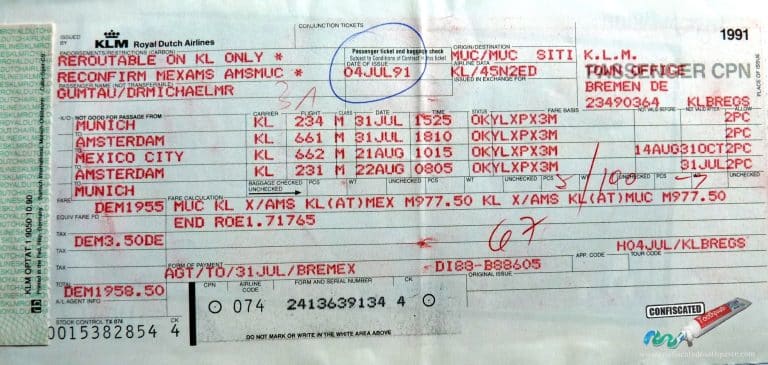 CONJUNCTION TICKETS
1991
ISSUED BY KLM Royal Dutch Airlines
Passenger ticket and baggage check
Subject to Conditions of Contract in this ticket
ENDORSEMENTS/RESTRICTIONS (CARBON) DATE OF ISSUE ORIGIN/DESTINATION
REROUTABLE ON KL ONLY * MUC/MUC SITI K.L.M.
AIRLINE DATA PASSENGER CPN
RECONFIRM MEXAMS AMSMUC * 04JUL91 KL/45N2ED TOWN OFFICE
PASSENGER NAME (NOT TRANSFERABLE) ISSUED IN EXCHANGE FOR BREMEN DE
GUMTAU/DRMICHAELMR 23490364 KLBREGS
PLACE OF ISSUE
X/O NOT GOOD FOR PASSAGE FROM CARRIER FLIGHT CLASS DATE TIME STATUS FARE BASIS NOT VALID BEFORE NOT VALID AFTER ALLOW
MUNICH KL 234 M 31JUL 1525 OKYLXPX3M 2PC
TO
AMSTERDAM KL 661 M 31JUL 1810 OKYLXPX3M 2PC
TO
MEXICO CITY KL 662 M 21AUG 1015 OKYLXPX3M 14AUG31OCT2PC
TO
AMSTERDAM KL 231 M 22AUG 0805 OKYLXPX3M 31JUL2PC
TO BAGGAGE CHECKED UNCHECKED PCS WT UNCHECKED PCS WT UNCHECKED PCS WT UNCHECKED PCS WT UNCHECKED
MUNICH
FARE FARE CALCULATION
DEM1955 MUC KL X/AMS KL(AT)MEX M977.50 KL X/AMS KL(AT)MUC M977.50
EQUIV FARE PD
END ROE1.71765
TAX
DEM3.50DE 67
TAX H04JUL/KLBREGS
TAX FORM OF PAYMENT TOUR CODE
AGT/TO/31JUL/BREMEX -DI88-B88605
TOTAL ORIGINAL ISSUE
DEM1958.50 CPN AIRLINE CODE FORM AND SERIAL NUMBER CK
A.L./AGENT INFO 074 2413639134 4
STOCK CONTROL TX 074 CK
0015382854 4 DO NOT MARK OR WRITE IN THE WHITE AREA ABOVE
KLM OPTAT 1 9050 10.90
CONFISCATED
Toothpaste